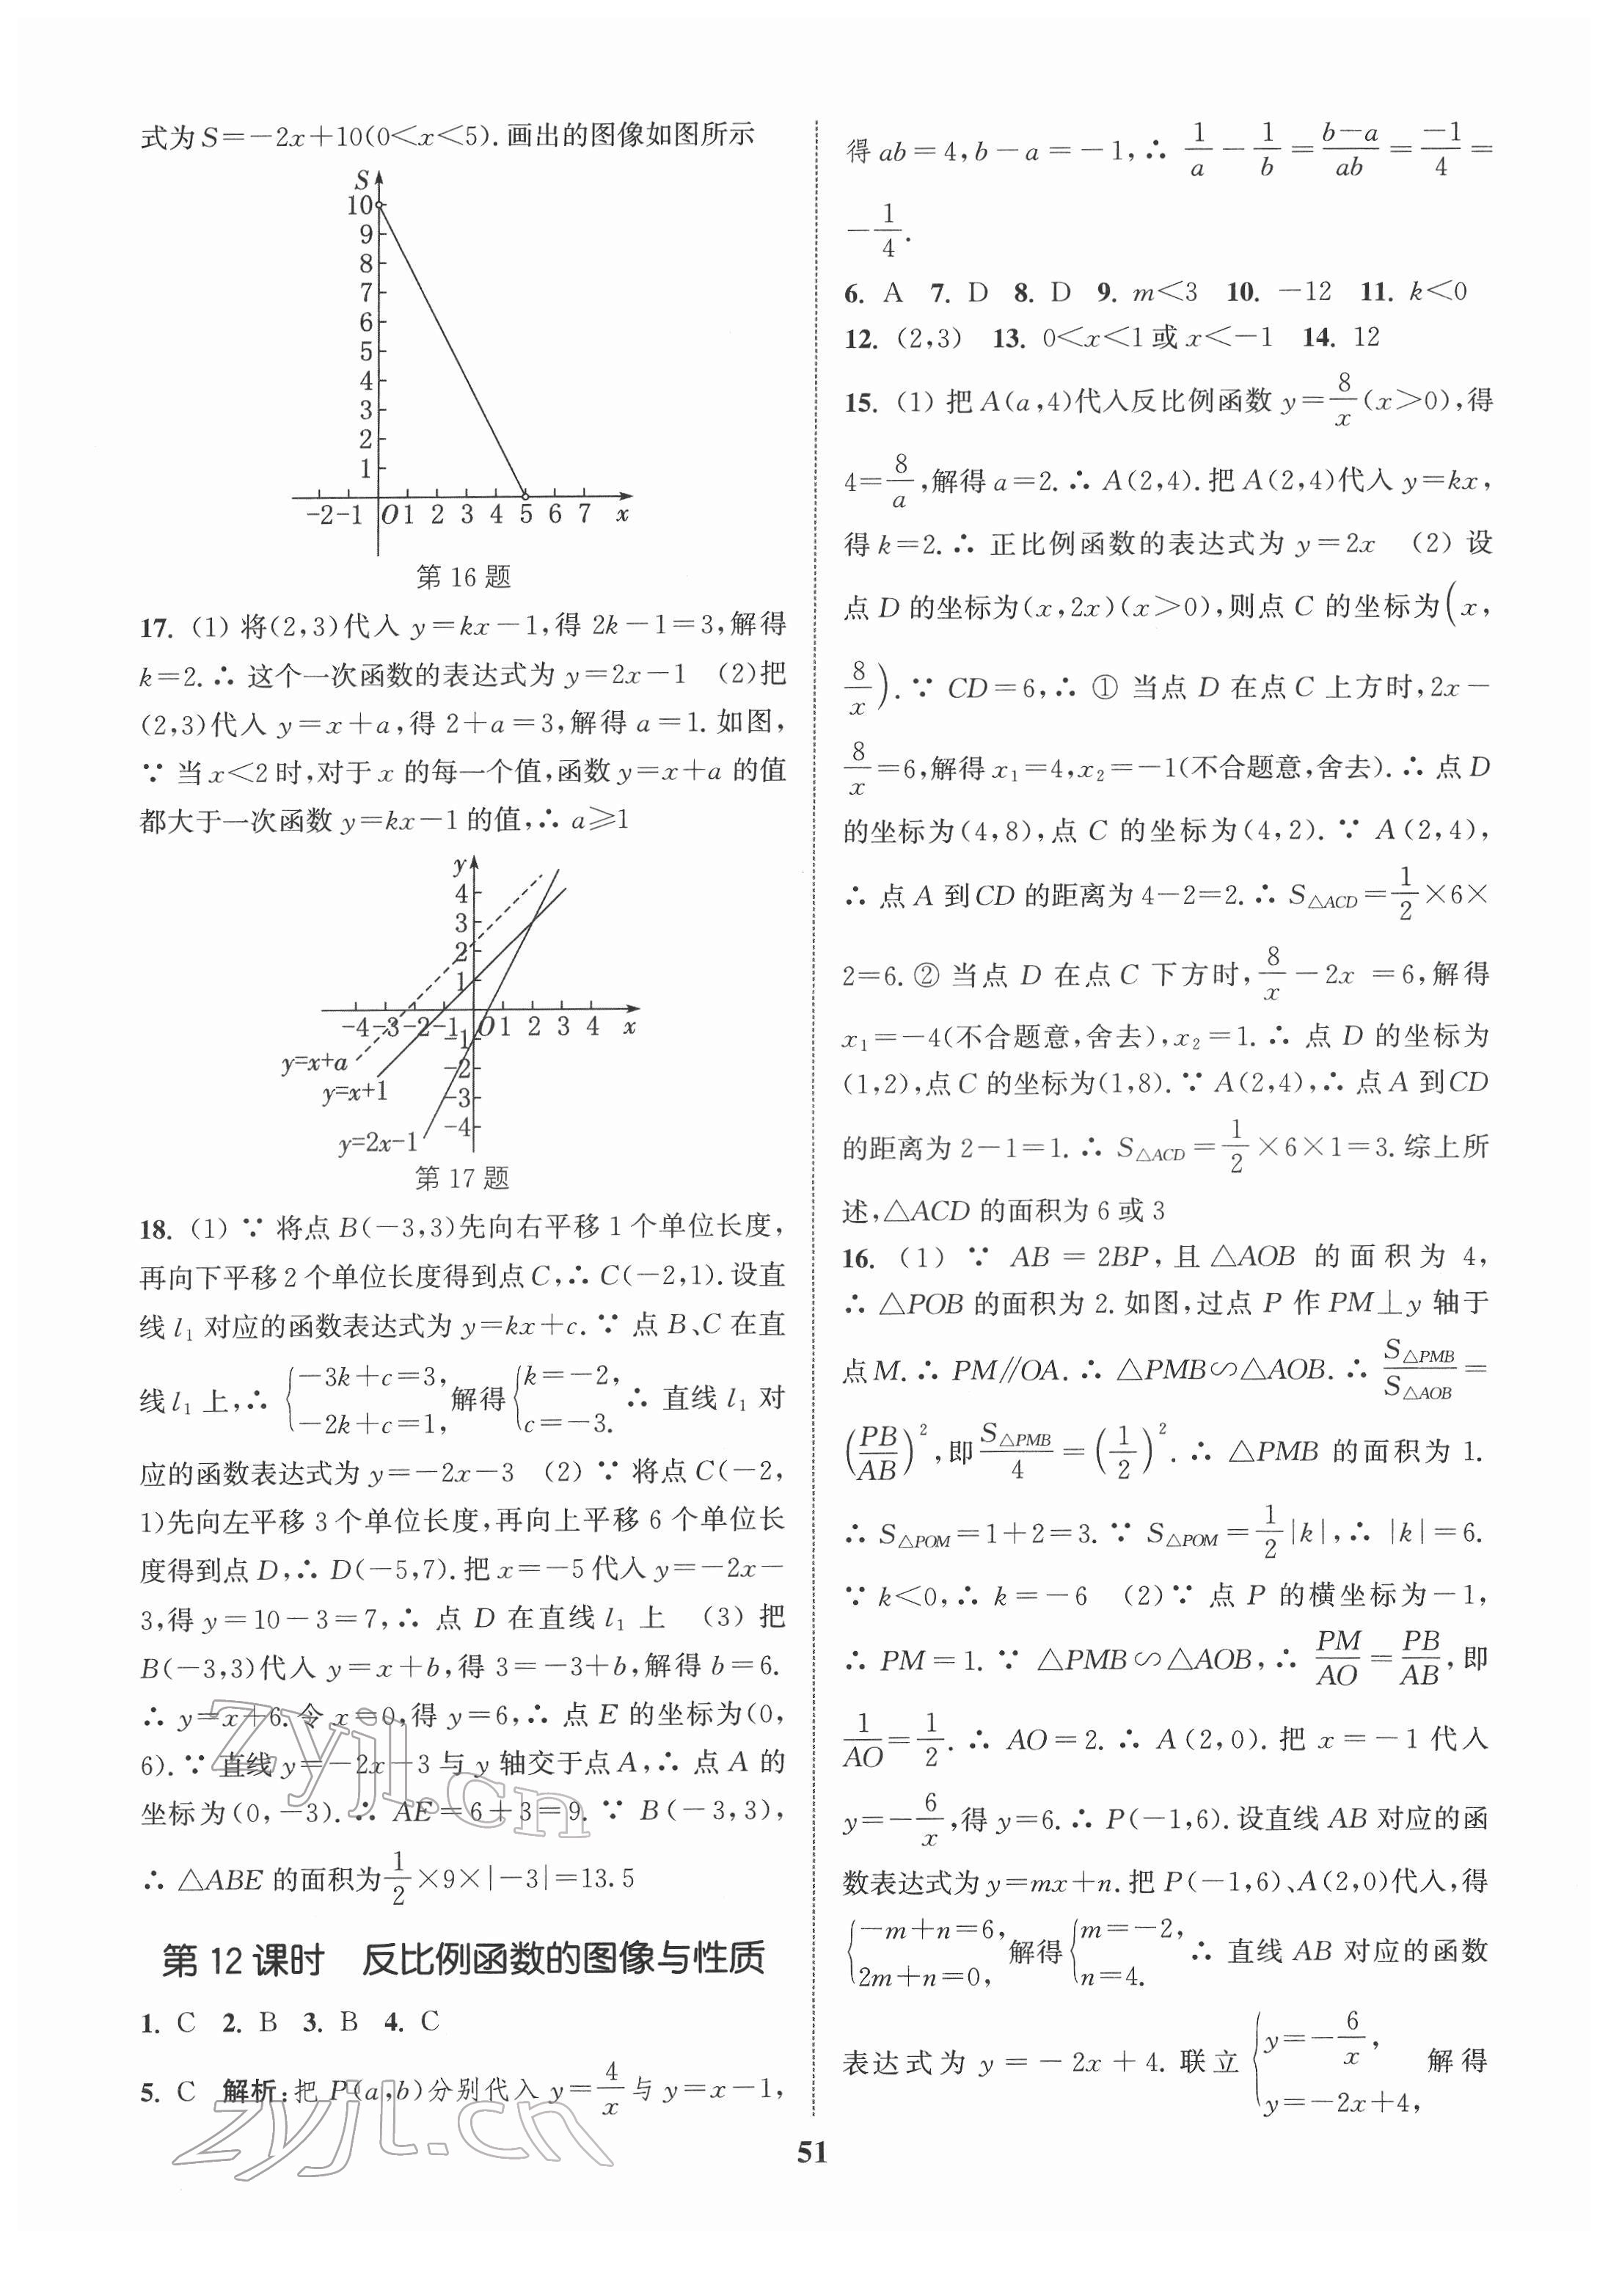 式为S=-2x+10(0<x<5).画出的图像如图所示
S
10
9
8
7
6
5
4
3
2
1
-2-1 O1 2 3 4 5 6 7 x
第16题
17. (1) 将(2,3)代入 y=kx-1,得 2k-1=3,解得
k=2.∴ 这个一次函数的表达式为 y=2x-1 (2)把
(2,3)代入 y=x+a,得 2+a=3,解得 a=1. 如图,
∵ 当 x<2 时,对于 x 的每一个值,函数 y=x+a 的值
都大于一次函数 y=kx-1 的值,∴ a⩾1
y
4
3
2
1
-4-3-2-1 O1 2 3 4 x
-1
-2
-3
-4
y=x+a
y=x+1
y=2x-1
第17题
18. (1) ∵ 将点 B(-3,3)先向右平移 1 个单位长度,
再向下平移 2 个单位长度得到点 C,∴ C(-2,1). 设直
线 l₁ 对应的函数表达式为 y=kx+c. ∵ 点 B、C 在直
线 l₁ 上,∴ {-3k+c=3, -2k+c=1, 解得 {k=-2, c=-3. ∴ 直线 l₁ 对
应的函数表达式为 y=-2x-3 (2) ∵ 将点 C(-2,
1)先向左平移 3 个单位长度,再向上平移 6 个单位长
度得到点 D,∴ D(-5,7). 把 x=-5 代入 y=-2x-
3,得 y=10-3=7,∴ 点 D 在直线 l₁ 上 (3) 把
B(-3,3)代入 y=x+b,得 3=-3+b,解得 b=6.
∴ y=x+6. 令 x=0,得 y=6,∴ 点 E 的坐标为(0,
6). ∵ 直线 y=-2x-3 与 y 轴交于点 A,∴ 点 A 的
坐标为(0,-3). ∴ AE=6+3=9. ∵ B(-3,3),
∴ △ABE 的面积为 1/2×9×|-3|=13.5
第 12 课时 反比例函数的图像与性质
1. C 2. B 3. B 4. C
5. C 解析:把 P(a,b)分别代入 y=4/x 与 y=x-1,
得 ab=4,b-a=-1,∴ 1/a-1/b=(b-a)/ab=-1/4=
-1/4.
6. A 7. D 8. D 9. m<3 10. -12 11. k<0
12. (2,3) 13. 0<x<1 或 x<-1 14. 12
15. (1) 把 A(a,4)代入反比例函数 y=8/x(x>0),得
4=8/a,解得 a=2. ∴ A(2,4). 把 A(2,4)代入 y=kx,
得 k=2. ∴ 正比例函数的表达式为 y=2x (2) 设
点 D 的坐标为(x,2x)(x>0),则点 C 的坐标为(x,
8/x). ∵ CD=6,∴ ① 当点 D 在点 C 上方时,2x-
8/x=6,解得 x₁=4,x₂=-1(不合题意,舍去). ∴ 点 D
的坐标为(4,8),点 C 的坐标为(4,2). ∵ A(2,4),
∴ 点 A 到 CD 的距离为 4-2=2. ∴ S△ACD=1/2×6×
2=6. ② 当点 D 在点 C 下方时,8/x-2x =6,解得
x₁=-4(不合题意,舍去),x₂=1. ∴ 点 D 的坐标为
(1,2),点 C 的坐标为(1,8). ∵ A(2,4),∴ 点 A 到 CD
的距离为 2-1=1. ∴ S△ACD=1/2×6×1=3. 综上所
述,△ACD 的面积为 6 或 3
16. (1) ∵ AB = 2BP,且 △AOB 的面积为 4,
∴ △POB 的面积为 2. 如图,过点 P 作 PM⊥y 轴于
点 M. ∴ PM∥OA. ∴ △PMB∽△AOB. ∴ S△PMB/S△AOB=
(PB/AB)²,即 S△PMB/4=(1/2)². ∴ △PMB 的面积为 1.
∴ S△POM=1+2=3. ∵ S△POM=1/2|k|,∴ |k|=6.
∵ k<0,∴ k=-6 (2)∵ 点 P 的横坐标为-1,
∴ PM=1. ∵ △PMB∽△AOB,∴ PM/AO=PB/AB,即
1/AO=1/2. ∴ AO=2. ∴ A(2,0). 把 x=-1 代入
y=-6/x,得 y=6. ∴ P(-1,6). 设直线 AB 对应的函
数表达式为 y=mx+n. 把 P(-1,6)、A(2,0)代入,得
{-m+n=6, 2m+n=0, 解得 {m=-2, n=4. ∴ 直线 AB 对应的函数
表达式为 y=-2x+4. 联立 {y=-6/x, y=-2x+4, 解得
51
zyjl.cn
zyjl.cn